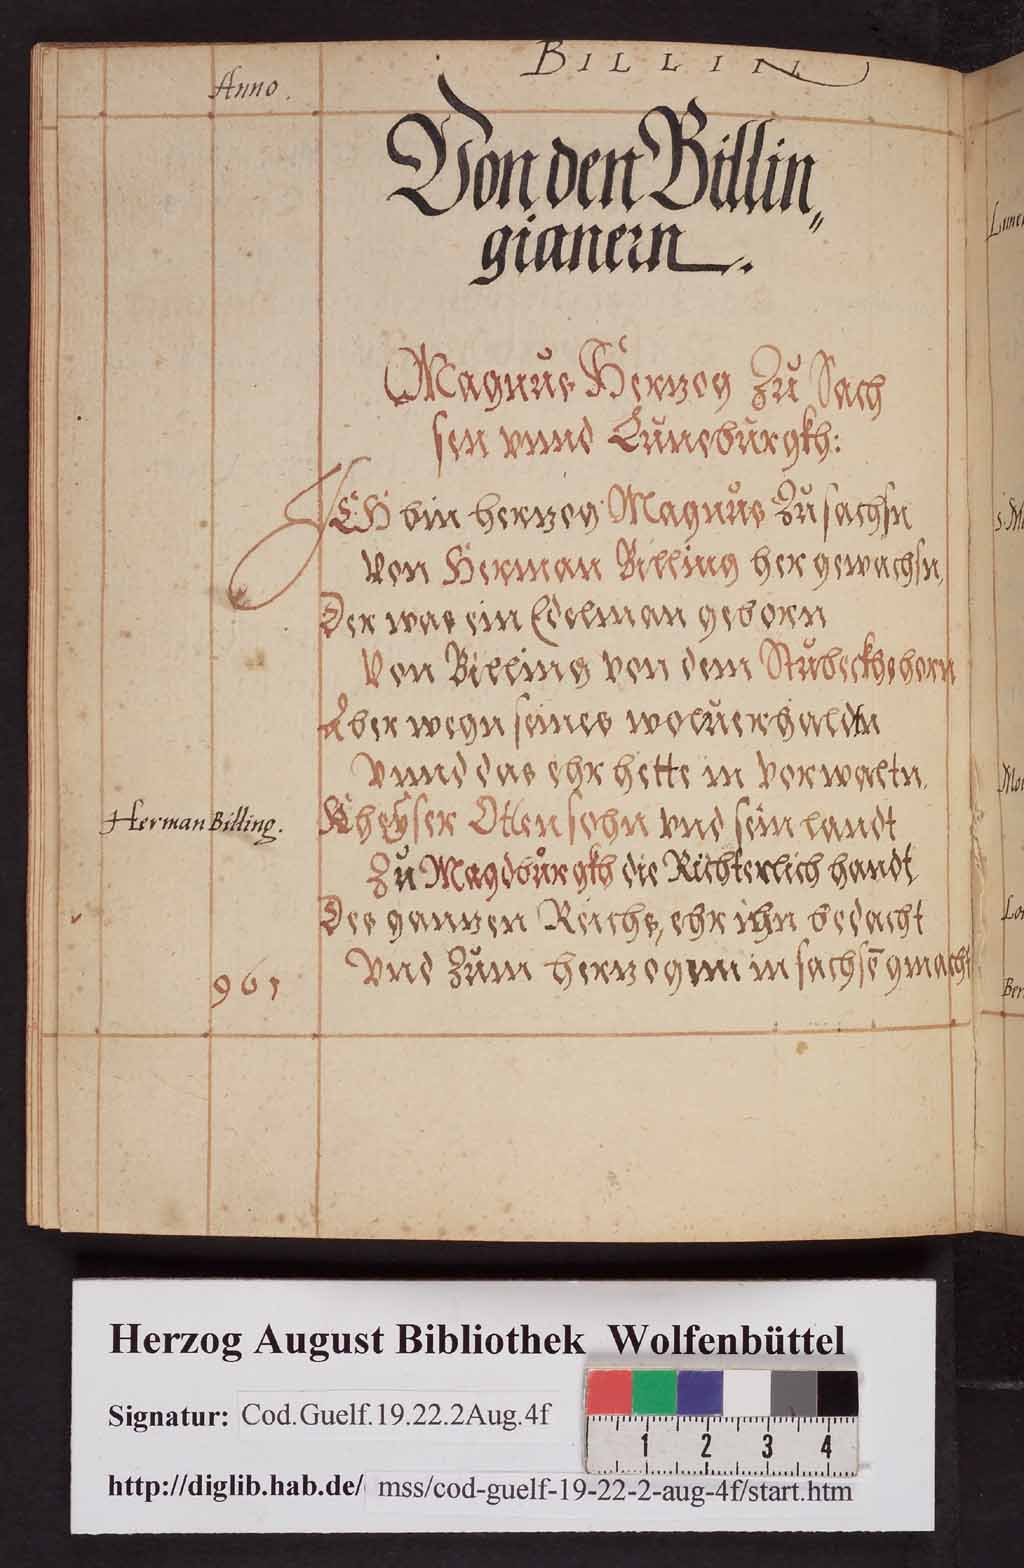 BILLIN
Anno.
Von den Billin„
gianern.
Magnus Hertzog Zu Sach
sen vnnd Luneburgkh:
ICH bin hertzog Magnus Zu sachsn
Von Herman Billing her gewachsn,
Der was ein Edelman geborn
Von Billing von dem Stubeckhshorn
Aber wegn seines woluerhaldtn
Vnnd das ehr hette in vorwaltn.
Herman Billing.
Kheyser Otten sohn vnd sein landt
Zu Magdburgkh die Richterlich handt
Des gantzen Reichs, ehr ihn bedacht
961
Vnd Zum hertzogen in sachsē gmacht
Herzog August Bibliothek Wolfenbüttel
Signatur: Cod.Guelf.19.22.2Aug.4f
1 2 3 4
http://diglib.hab.de/ mss/cod-guelf-19-22-2-aug-4f/start.htm